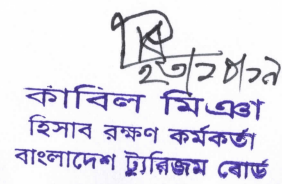 কাবিল মিঞা
হিসাব রক্ষণ কর্মকর্তা
বাংলাদেশ ট্যুরিজম বোর্ড